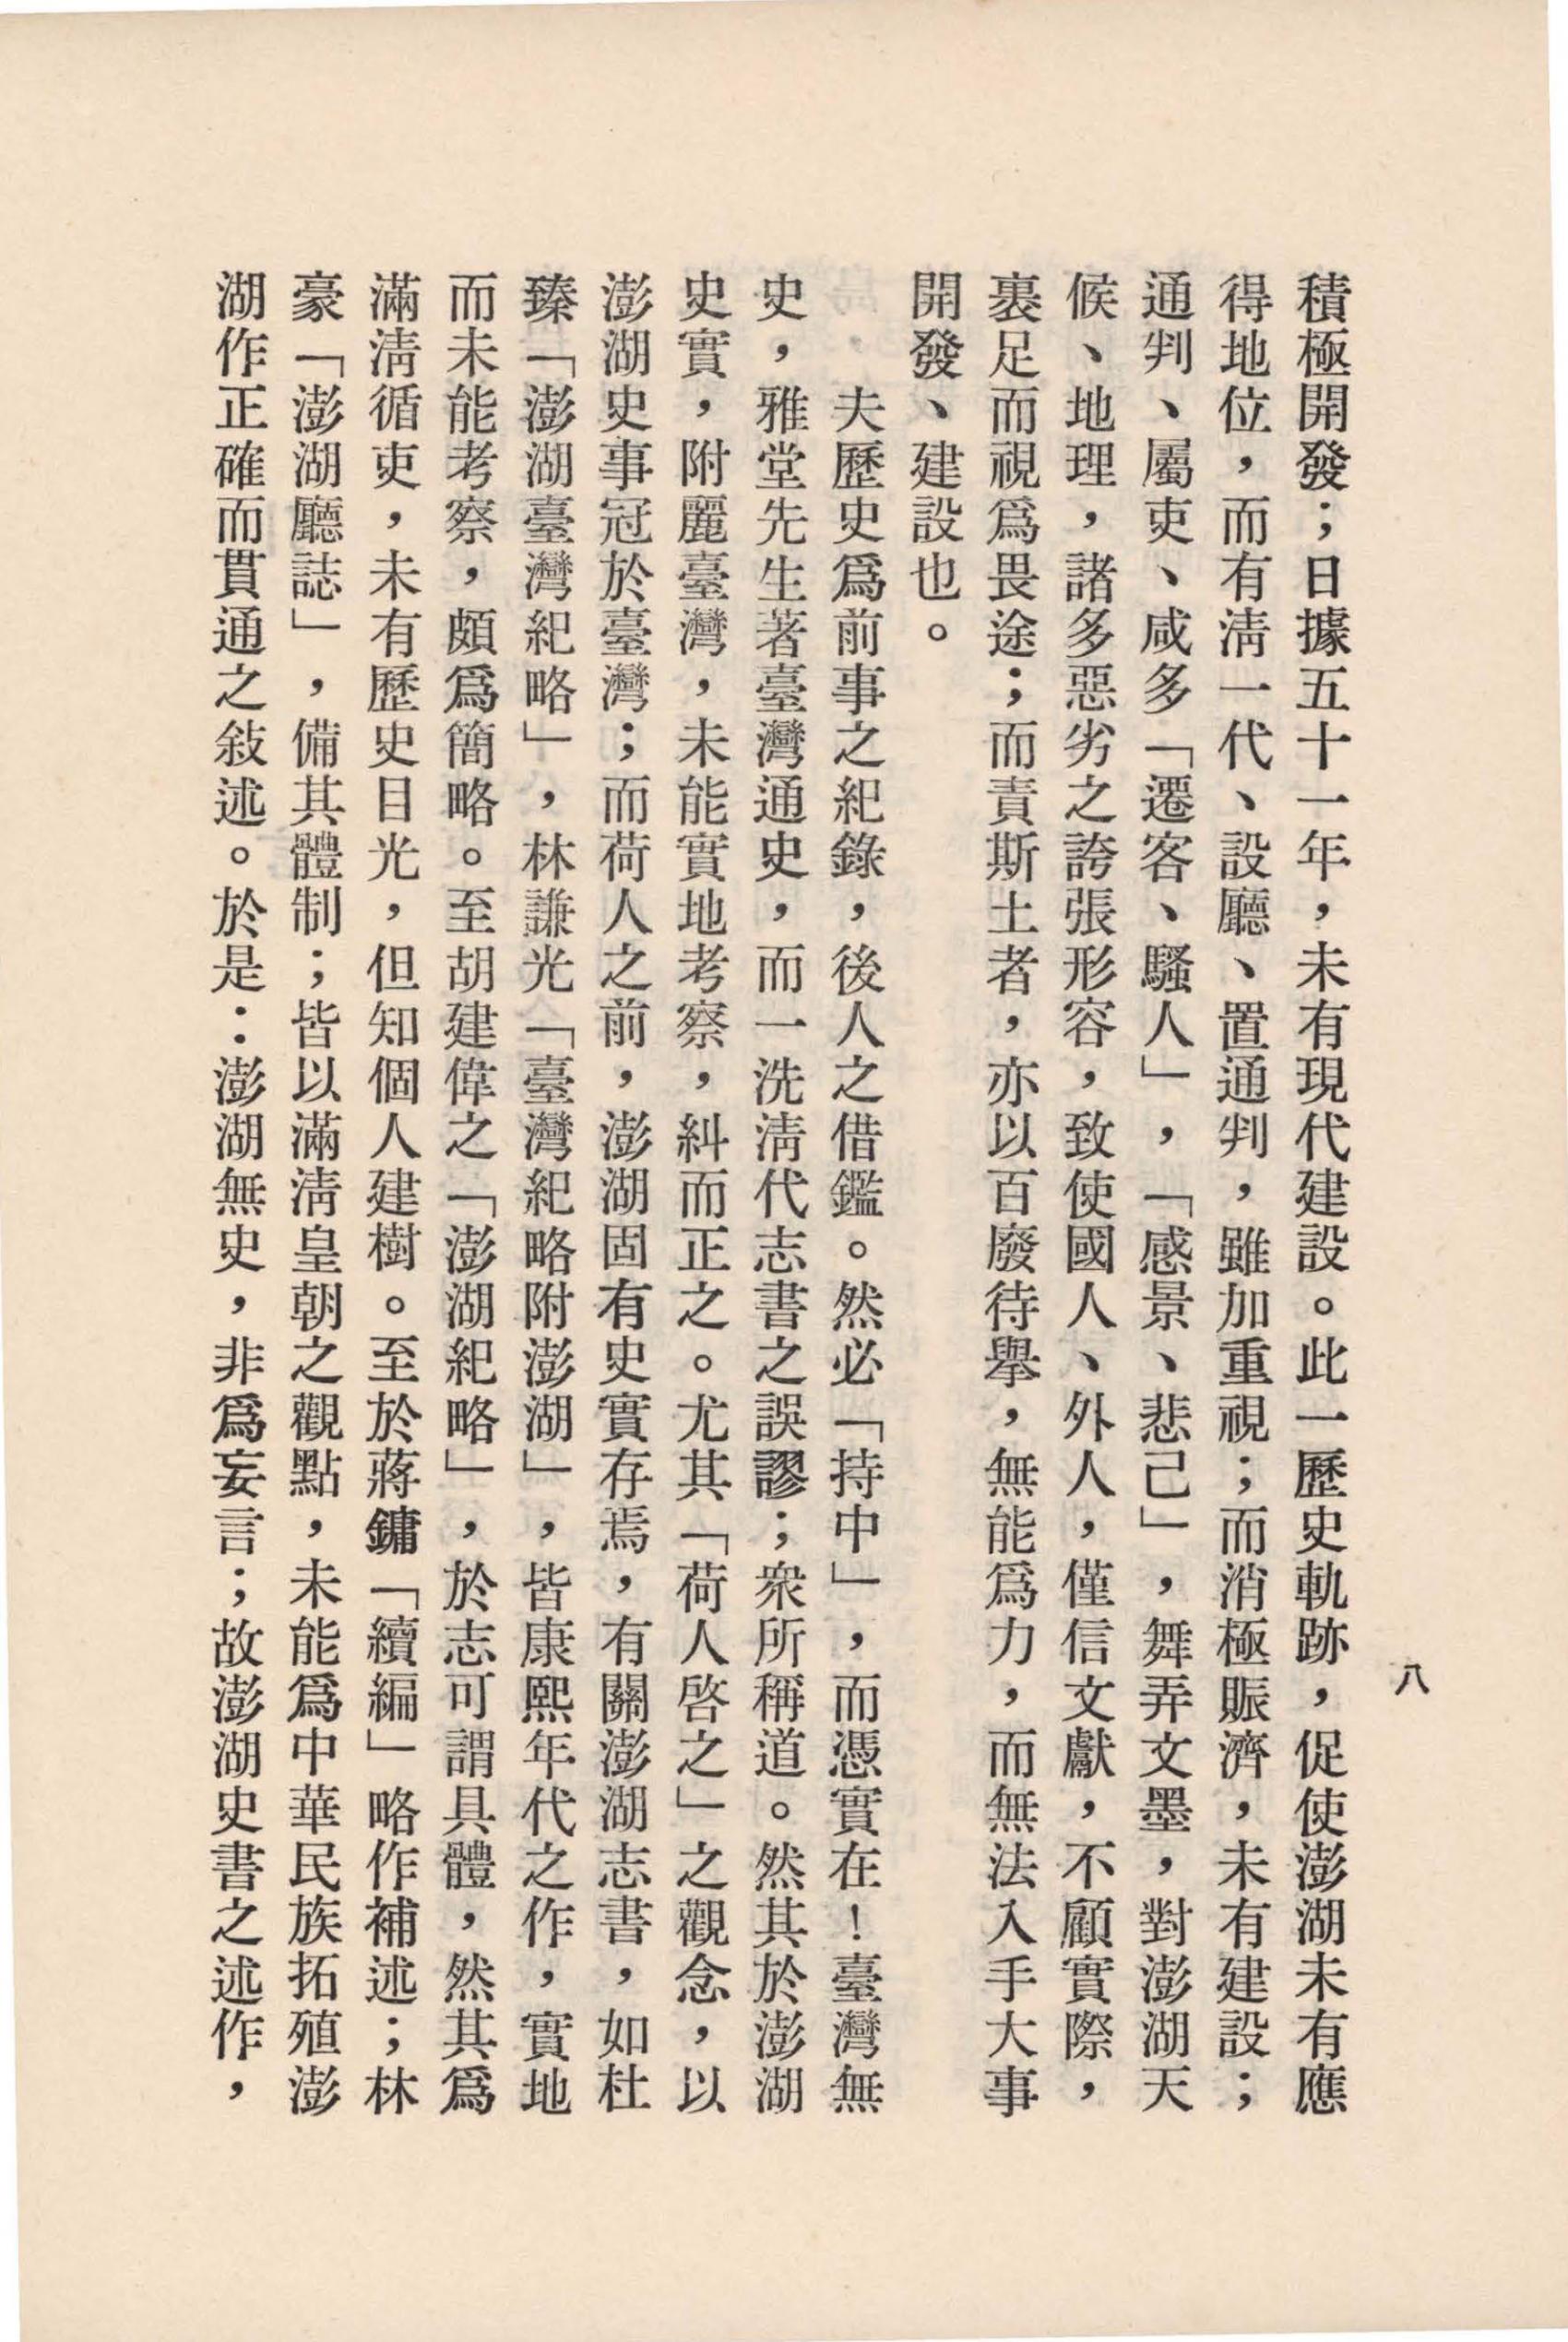 八
積極開發；日據五十一年，未有現代建設。此一歷史軌跡，促使澎湖未有應
得地位，而有淸一代、設廳、置通判，雖加重視；而消極賑濟，未有建設；
通判、屬吏、咸多「遷客、騷人」，「感景、悲己」，舞弄文墨，對澎湖天
候、地理，諸多惡劣之誇張形容，致使國人、外人，僅信文獻，不顧實際，
裹足而視爲畏途；而責斯土者，亦以百廢待擧，無能爲力，而無法入手大事
開發、建設也。
夫歷史爲前事之紀錄，後人之借鑑。然必「持中」，而憑實在！臺灣無
史，雅堂先生著臺灣通史，而一洗淸代志書之誤謬；衆所稱道。然其於澎湖
史實，附麗臺灣，未能實地考察，糾而正之。尤其「荷人啓之」之觀念，以
澎湖史事冠於臺灣；而荷人之前，澎湖固有史實存焉，有關澎湖志書，如杜
臻「澎湖臺灣紀略」，林謙光「臺灣紀略附澎湖」，皆康熙年代之作，實地
而未能考察，頗爲簡略。至胡建偉之「澎湖紀略」，於志可謂具體，然其爲
滿淸循吏，未有歷史目光，但知個人建樹。至於蔣鏞「續編」略作補述；林
豪「澎湖廳誌」，備其體制；皆以滿淸皇朝之觀點，未能爲中華民族拓殖澎
湖作正確而貫通之敍述。於是：澎湖無史，非爲妄言；故澎湖史書之述作，